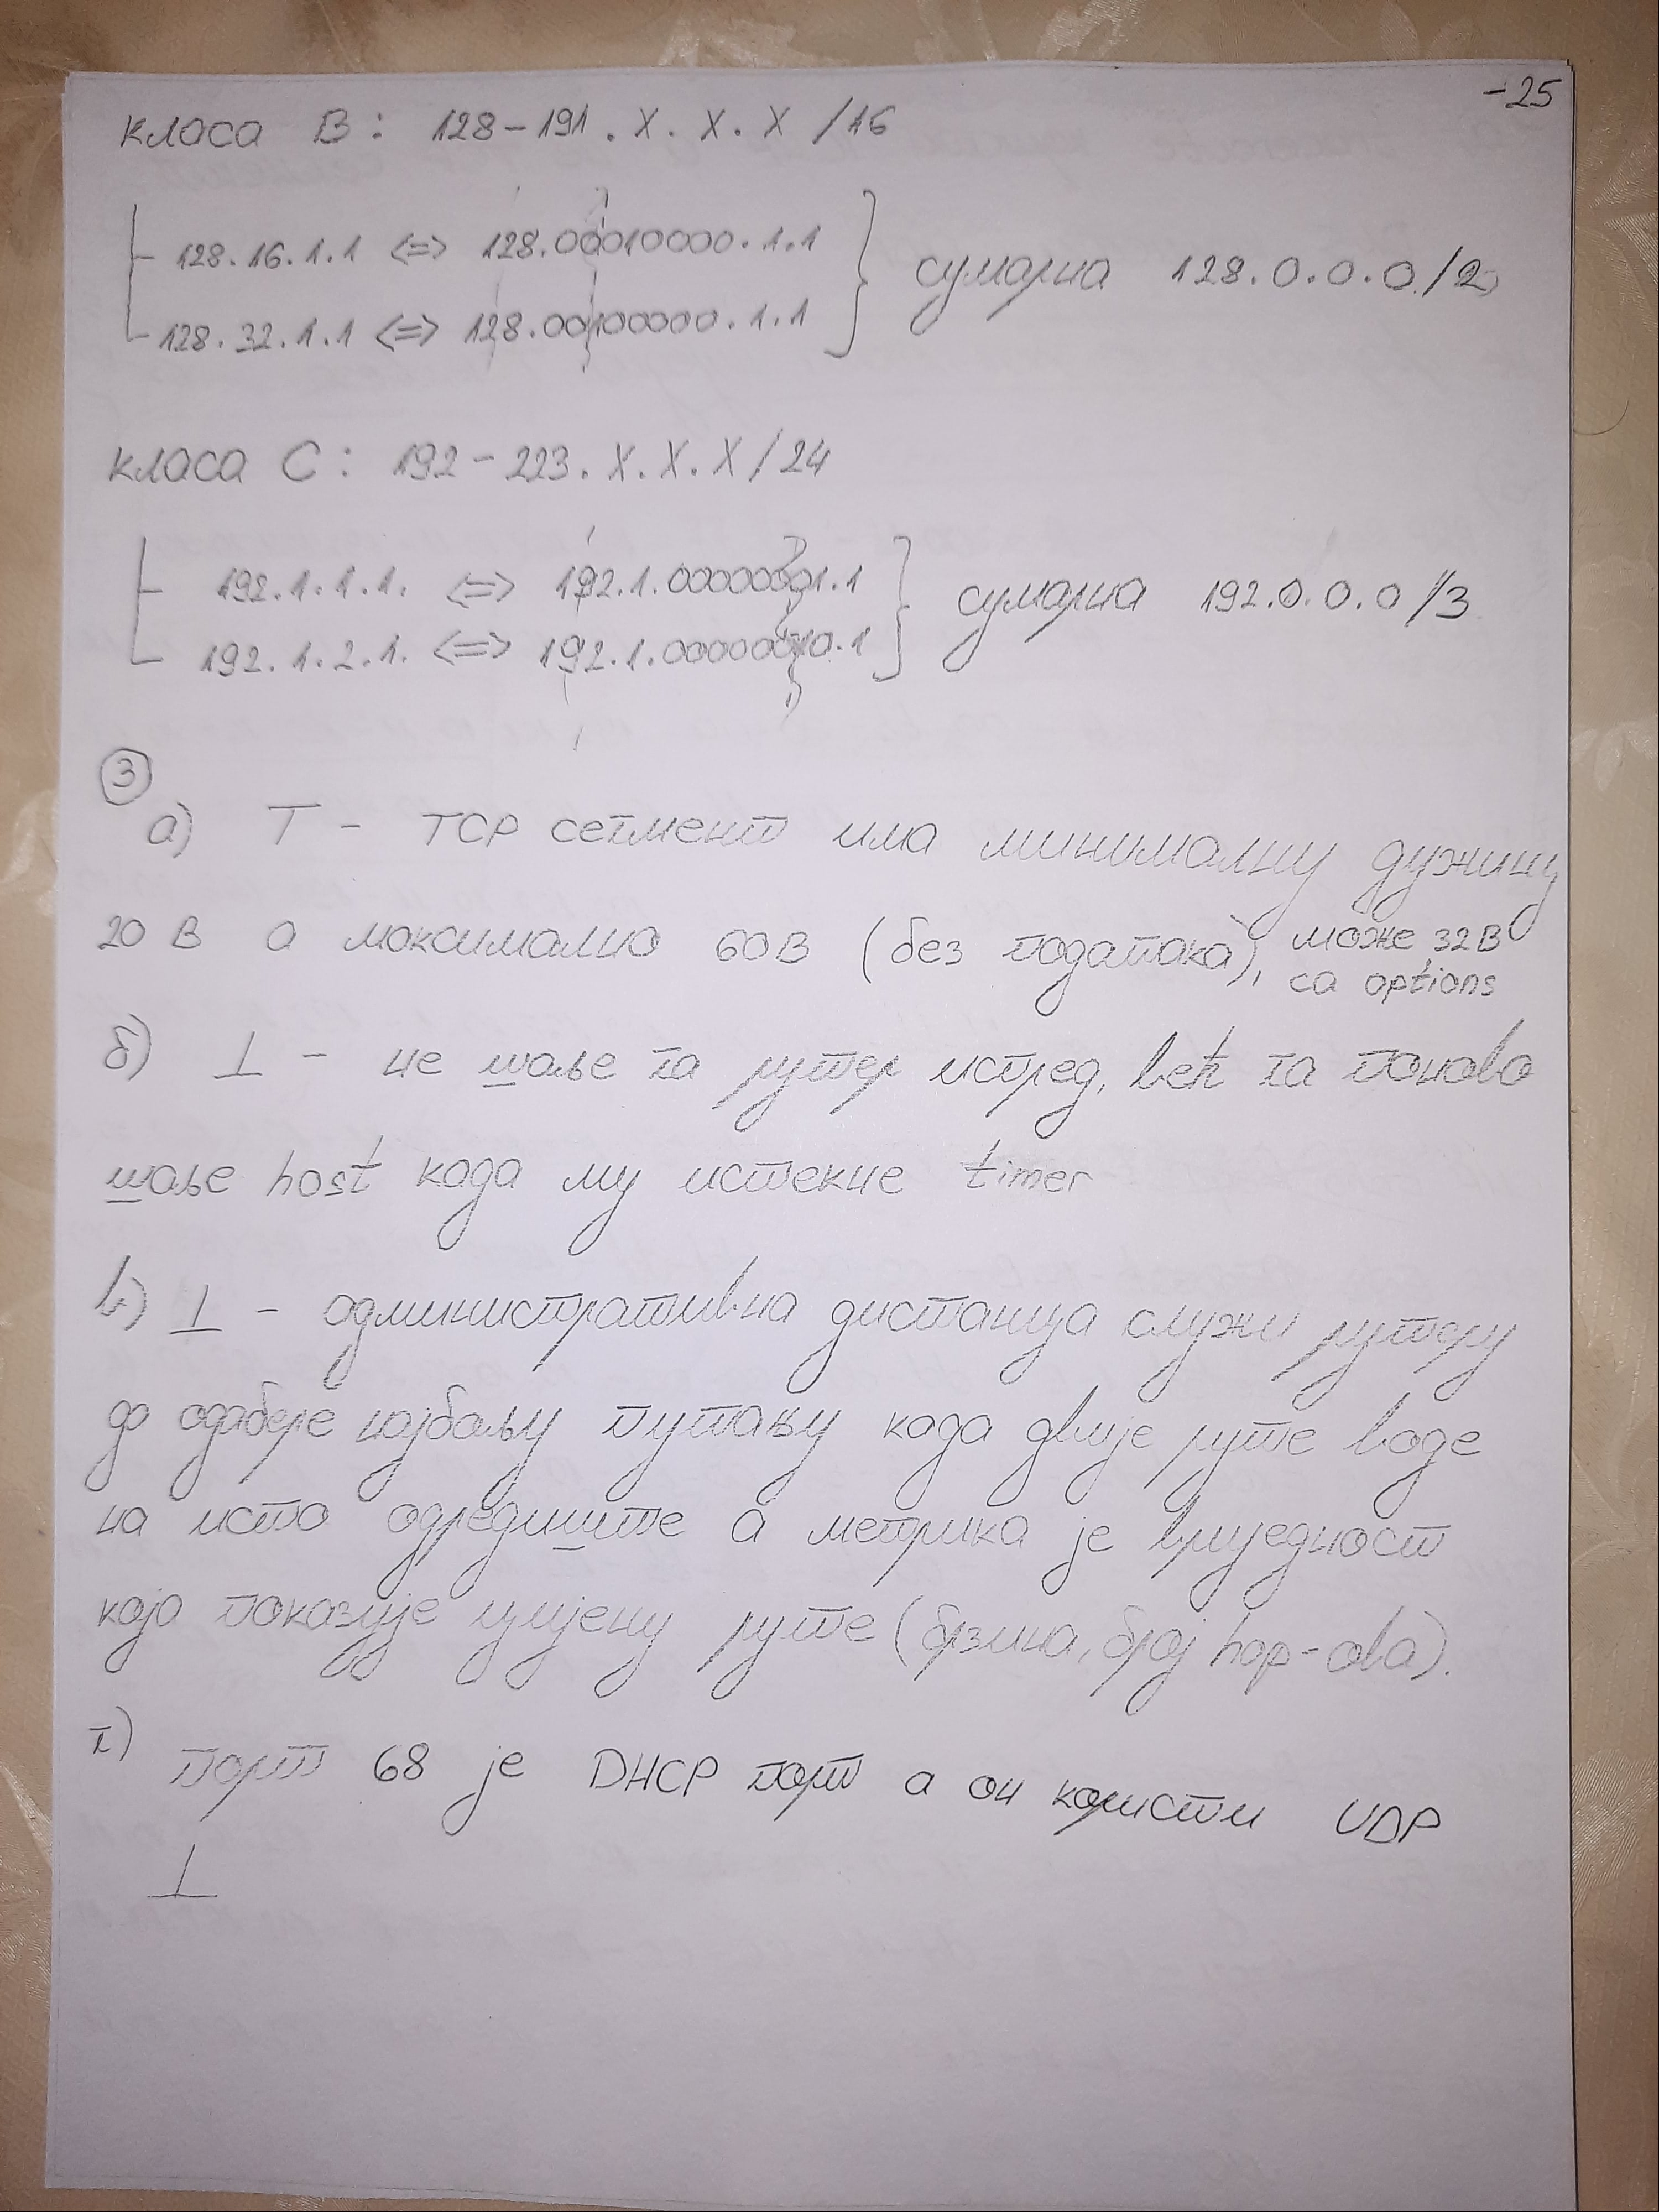 -25
класа B: 128-191.X.X.X /16
128.16.1.1 <=> 128.00010000.1.1
сумарна 128.0.0.0/2
128.32.1.1 <=> 128.00100000.1.1
класа C: 192-223.X.X.X/24
192.1.1.1. <=> 192.1.00000001.1
сумарна 192.0.0.0/3
192.1.2.1. <=> 192.1.00000010.1
3
а) T - TCP сегмент има минималну дужину
20 B а максимално 60B (без података), може 32B
са options
б) ⊥ - не шаље га рутер испред, већ га поново
шаље host када му истекне timer
в) ⊥ - административна дистанца служи рутеру
да одабере најбољу путању када двије руте воде
на исто одредиште а метрика је вриједност
која показује цијену руте (брзина, број hop-ова).
г) порт 68 је DHCP порт а он користи UDP
⊥